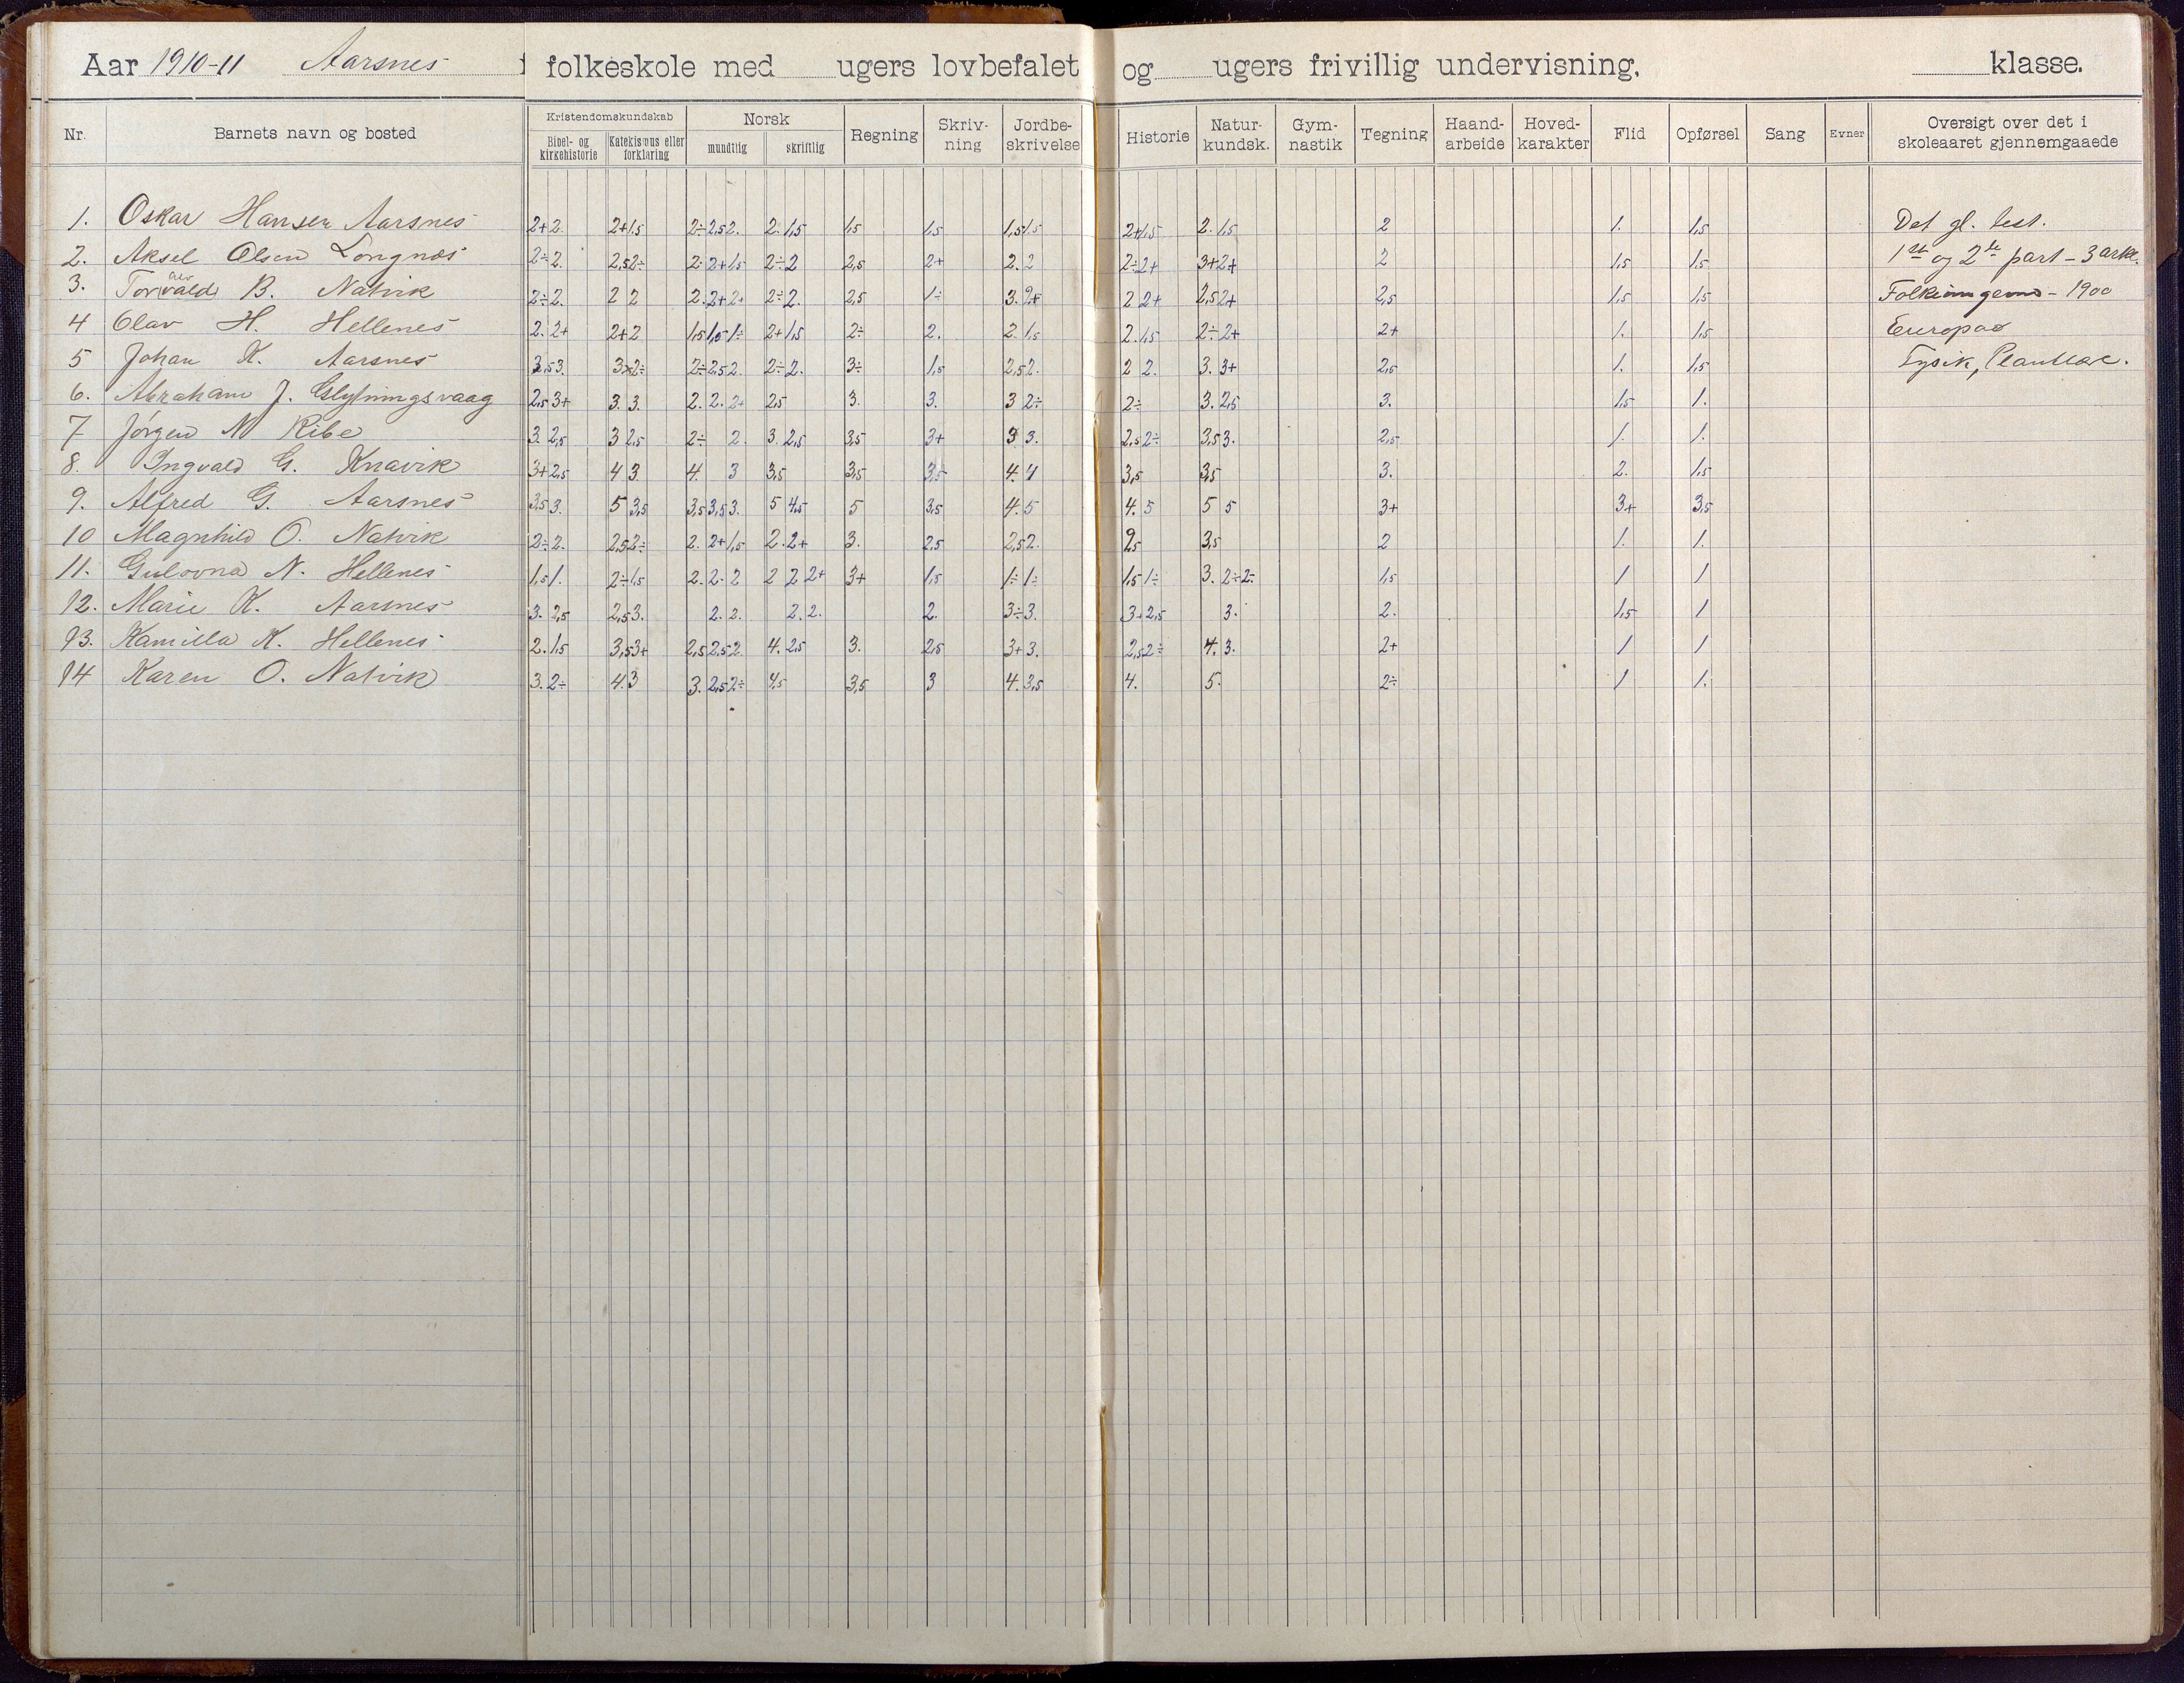 Aar 1910-11 Aarsnes folkeskole med ugers lovbefalet og ugers frivillig undervisning, klasse.
Nr. Barnets navn og bosted Kristendomskundskab Bibel- og kirkehistorie Katekismus eller forklaring Norsk mundtlig skriftlig Regning Skriv-ning Jordbe-skrivelse Historie Natur-kundsk. Gym-nastik Tegning Haand-arbeide Hoved-karakter Flid Opførsel Sang Evner Oversigt over det i skoleaaret gjennemgaaede
1. Oskar Hansen Aarsnes 2+ 2. 2+ 1,5 2÷ 2,5 2. 2. 1,5 1,5 1,5 1,5 1,5 2+ 1,5 2. 1,5 2 1. 1,5 Det gl. test.
2. Aksel Olsen Longnes 2÷ 2. 2,5 2÷ 2. 2+ 1,5 2÷ 2 2,5 2+ 2. 2 2÷ 2+ 3+ 2+ 2 1,5 1,5 1ste og 2de part - 3 artk.
3. Torvald B. Natvik 2÷ 2. 2 2 2. 2+ 2+ 2÷ 2. 2,5 1÷ 3. 2+ 2 2+ 2,5 2+ 2,5 1,5 1,5 - 1900
4 Olav H. Hellenes 2. 2+ 2+ 2 1,5 1,5 1÷ 2+ 1,5 2÷ 2. 2. 1,5 2. 1,5 2÷ 2+ 2+ 1. 1,5 Europas
5 Johan K. Aarsnes 3,5 3. 3 2÷ 2÷ 2,5 2. 2÷ 2. 3÷ 1,5 2,5 2. 2 2. 3. 3+ 2,5 1. 1,5 Fysik, Plantelære.
6. Abraham J. Glypningsvaag 2,5 3+ 3. 3. 2. 2. 2+ 2,5 3. 3. 3 2÷ 2÷ 3. 2,5 3. 1,5 1.
7 Jørgen N Ribe 3. 2,5 3 2,5 2÷ 2. 3. 2,5 3,5 3+ 3 3. 2,5 2÷ 3,5 3. 2,5 1. 1.
8. Ingvald G. Knavik 3+ 2,5 4 3. 4. 3 3,5 3,5 3,5 4. 4 3,5 3,5 3. 2. 1,5
9. Alfred G. Aarsnes 3,5 3. 5 3,5 3,5 3,5 3. 5 4,5 5 3,5 4. 5 4. 5 5 5 3+ 3+ 3,5
10 Magnhild O. Natvik 2÷ 2. 2,5 2÷ 2. 2+ 1,5 2. 2+ 3. 2,5 2,5 2. 2,5 3,5 2 1. 1.
11. Gulovna N. Hellenes 1,5 1. 2÷ 1,5 2. 2. 2 2 2 2+ 3+ 1,5 1÷ 1÷ 1,5 1÷ 3. 2÷ 2÷ 1,5 1 1
12. Marie K. Aarsnes 3. 2,5 2,5 3. 2. 2. 2. 2. 2. 3÷ 3. 3+ 2,5 3. 2. 1,5 1
13. Kamilla K. Hellenes 2. 1,5 3,5 3+ 2,5 2,5 2. 4. 2,5 3. 2,5 3+ 3. 2,5 2÷ 4. 3. 2+ 1 1
14 Karen O. Natvik 3. 2÷ 4. 3 3. 2,5 2÷ 4,5 3,5 3 4. 3,5 4. 5. 2÷ 1 1.